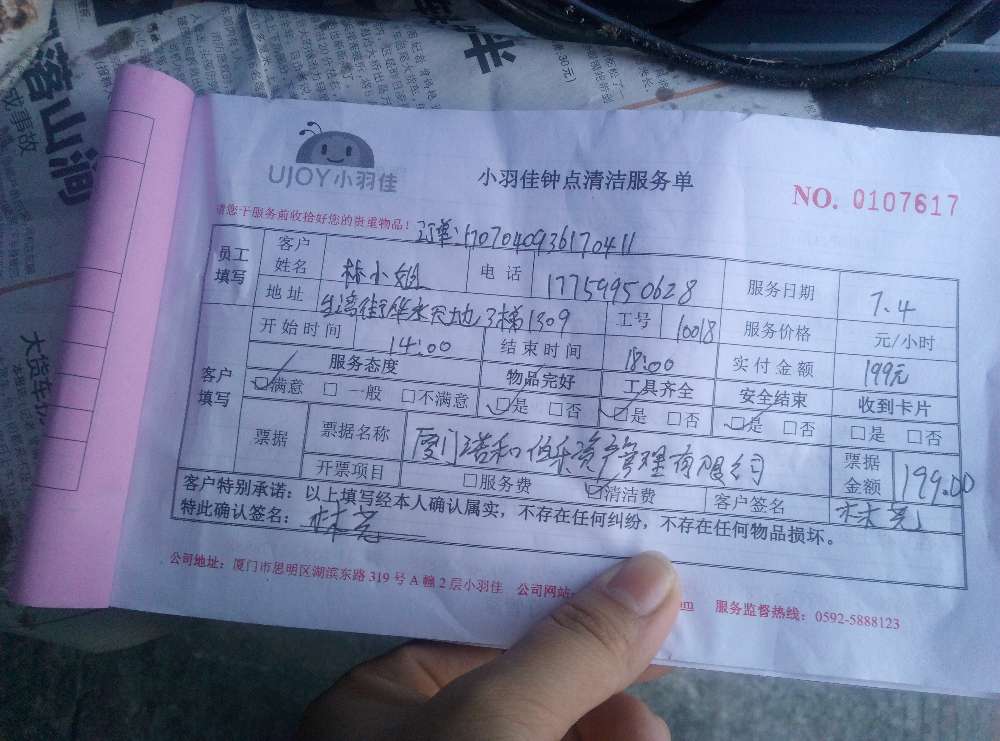 落山涧
或事故
UJOY小羽佳
小羽佳钟点清洁服务单
NO. 0107617
请您于服务前收拾好您的贵重物品！
订单:170704093617041
员工填写
客户姓名 林小姐 电话 17759950628 服务日期 7.4
地址 3梯1309 工号 10018 服务价格 元/小时
开始时间 14:00 结束时间 18:00 实付金额 199元
客户填写
服务态度 物品完好 工具齐全 安全结束 收到卡片
☑满意 □一般 □不满意 ☑是 □否 ☑是 □否 ☑是 □否 □是 □否
票据 票据名称 厦门诺和伯乐资产管理有限公司 票据金额 199.00
开票项目 □服务费 ☑清洁费 客户签名 林亮
客户特别承诺：以上填写经本人确认属实，不存在任何纠纷，不存在任何物品损坏。
特此确认签名：林亮
公司地址：厦门市思明区湖滨东路319号A幢2层小羽佳 公司网站 om 服务监督热线：0592-5888123